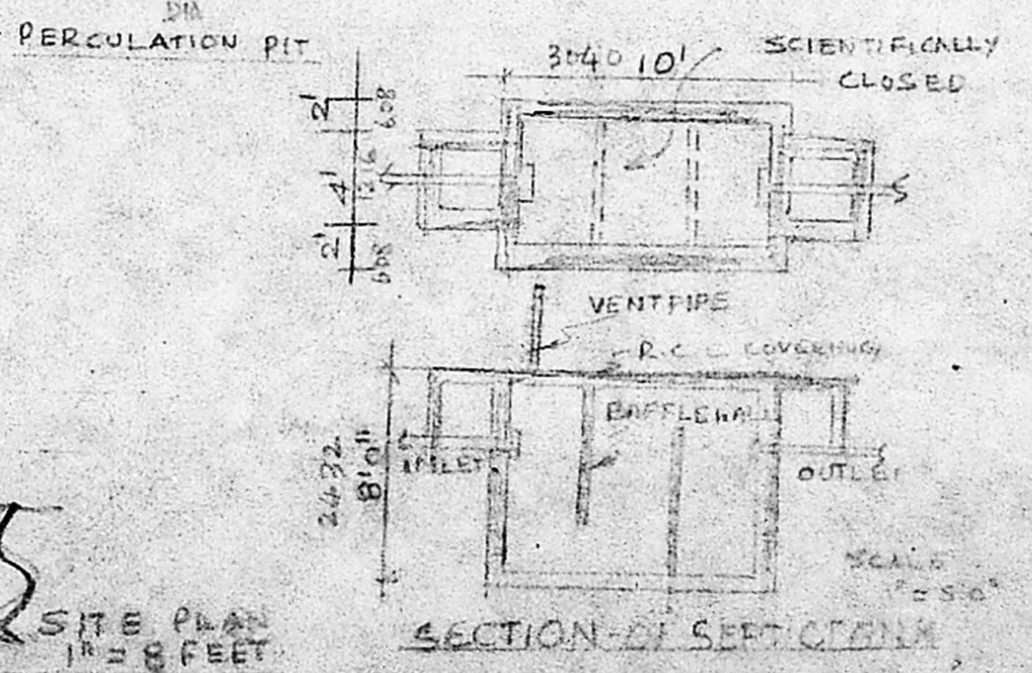 DIA
PERCULATION PIT
3040 10'
SCIENTIFICALLY
CLOSED
2'
608
4'
1216
2'
608
VENTPIPE
R.C.C COVERING
BAFFLEWALL
INLET
OUTLET
2432
8'0"
SCALE
SITE PLAN
1" = 8 FEET
SECTION-OF SEPTICTANK